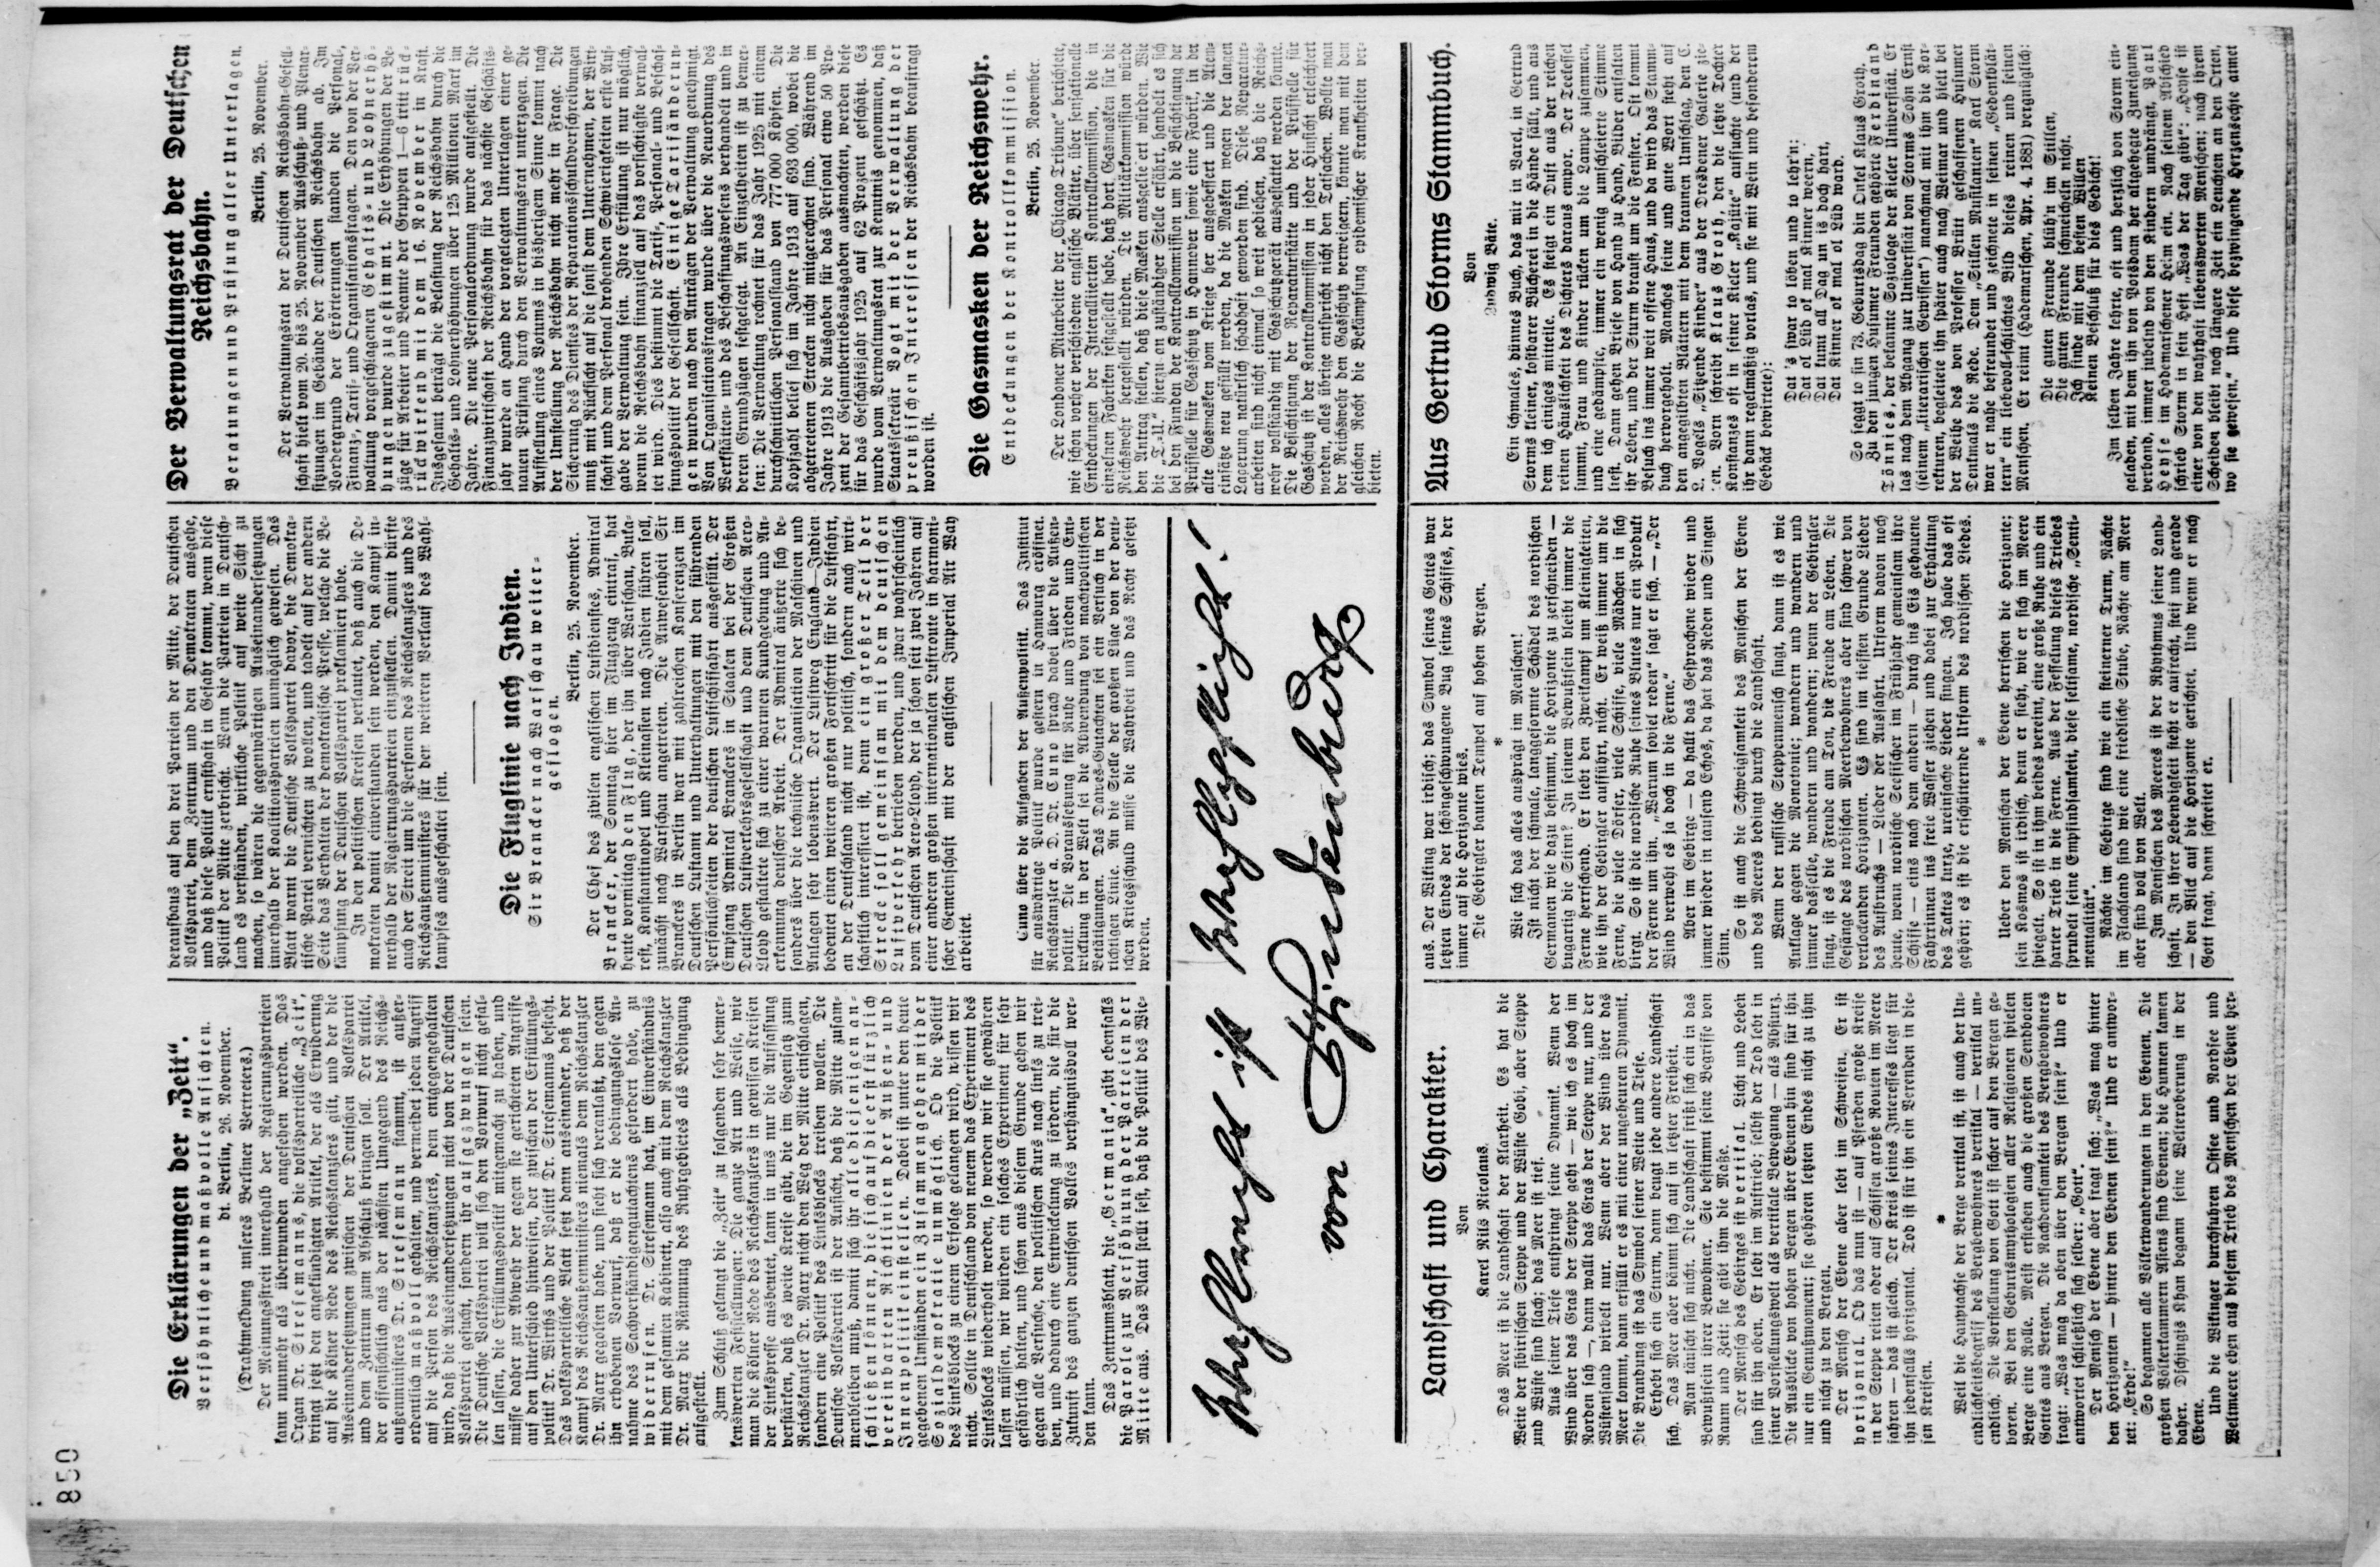 850
Die Erklärungen der „Zeit“.
Versöhnliche und maßvolle Ansichten.
dt. Berlin, 26. November.
(Drahtmeldung unseres Berliner Vertreters.)
Der Meinungsstreit innerhalb der Regierungsparteien
kann nunmehr als überwunden angesehen werden. Das
Organ Dr. Stresemanns, die volksparteiliche „Zeit“,
bringt jetzt den angekündigten Artikel, der als Erwiderung
auf die Kölner Rede des Reichskanzlers gilt, und der die
Auseinandersetzungen zwischen der Deutschen Volkspartei
und dem Zentrum zum Abschluß bringen soll. Der Artikel,
der offensichtlich aus der nächsten Umgegend des Reichs-
außenministers Dr. Stresemann stammt, ist außer-
ordentlich maßvoll gehalten, und vermeidet jeden Angriff
auf die Person des Reichskanzlers, dem entgegengehalten
wird, daß die Auseinandersetzungen nicht von der Deutschen
Volkspartei gesucht, sondern ihr aufgezwungen seien.
Die Deutsche Volkspartei will sich den Vorwurf nicht gefal-
len lassen, die Erfüllungspolitik mitgemacht zu haben, und
müsse daher zur Abwehr der gegen sie gerichteten Angriffe
auf den Unterschied hinweisen, der zwischen der Erfüllungs-
politik Dr. Wirths und der Politik Dr. Stresemanns besteht.
Das volksparteiliche Blatt setzt dann auseinander, daß der
Kampf des Reichsaußenministers niemals dem Reichskanzler
Dr. Marx gegolten habe, und sieht sich veranlaßt, den gegen
ihn erhobenen Vorwurf, daß er die bedingungslose An-
nahme des Sachverständigengutachtens gefordert habe, zu
widerrufen. Dr. Stresemann hat, im Einverständnis
mit dem gesamten Kabinett, also auch mit dem Reichskanzler
Dr. Marx die Räumung des Ruhrgebietes als Bedingung
aufgestellt.
Zum Schluß gelangt die „Zeit“ zu folgenden sehr bemer-
kenswerten Feststellungen: Die ganze Art und Weise, wie
man die Kölner Rede des Reichskanzlers in gewissen Kreisen
der Linkspresse ausbeutet, kann in uns nur die Auffassung
verstärken, daß es weite Kreise gibt, die im Gegensatz zum
Reichskanzler Dr. Marx nicht den Weg der Mitte einschlagen,
sondern eine Politik des Linksblocks treiben wollen. Die
Deutsche Volkspartei ist der Ansicht, daß die Mitte zusam-
menbleiben muß, damit sich ihr alle diejenigen an-
schließen können, die sich auf die erst kürzlich
vereinbarten Richtlinien der Außen- und
Innenpolitik einstellen. Dabei ist unter den heute
gegebenen Umständen ein Zusammengehen mit der
Sozialdemokratie unmöglich. Ob die Politik
des Linksblocks zu einem Erfolge gelangen wird, wissen wir
nicht. Sollte in Deutschland von neuem das Experiment des
Linksblocks wiederholt werden, so werden wir sie gewähren
lassen müssen, wir würden ein solches Experiment für sehr
gefährlich halten, und schon aus diesem Grunde gehen wir
gegen alle Versuche, den politischen Kurs nach links zu trei-
ben, und dadurch eine Entwickelung zu fördern, die für die
Zukunft des ganzen deutschen Volkes verhängnisvoll wer-
den kann.
Das Zentrumsblatt, die „Germania“, gibt ebenfalls
die Parole zur Versöhnung der Parteien der
Mitte aus. Das Blatt stellt fest, daß die Politik des Wie-
deraufbaus auf den drei Parteien der Mitte, der Deutschen
Volkspartei, dem Zentrum und den Demokraten ausgehe,
und daß diese Politik ernsthaft in Gefahr kommt, wenn diese
Politik der Mitte zerbricht. Wenn die Parteien in Deutsch-
land es verständen, wirkliche Politik auf weite Sicht zu
machen, so wären die gegenwärtigen Auseinandersetzungen
innerhalb der Koalitionsparteien unmöglich gewesen. Das
Blatt warnt die Deutsche Volkspartei davor, die Demokra-
tische Partei vernichten zu wollen, und tadelt auf der andern
Seite das Verhalten der demokratische Presse, welche die Be-
kämpfung der Deutschen Volkspartei proklamiert habe.
In den politischen Kreisen verlautet, daß auch die De-
mokraten damit einverstanden sein werden, den Kampf in-
nerhalb der Regierungsparteien einzustellen. Damit dürfte
auch der Streit um die Personen des Reichskanzlers und des
Reichsaußenministers für den weiteren Verlauf des Wahl-
kampfes ausgeschaltet sein.
Die Fluglinie nach Indien.
Sir Brancker nach Warschau weiter-
geflogen.
Berlin, 25. November.
Der Chef des zivilen englischen Luftdienstes, Admiral
Brancker, der Sonntag hier im Flugzeug eintraf, hat
heute vormittag den Flug, der ihn über Warschau, Buka-
rest, Konstantinopel und Kleinasien nach Indien führen soll,
zunächst nach Warschau angetreten. Die Anwesenheit Sir
Branckers in Berlin war mit zahlreichen Konferenzen im
Deutschen Luftamt und Unterhaltungen mit den führenden
Persönlichkeiten der deutschen Luftschiffahrt ausgefüllt. Der
Empfang Admiral Branders in Staaken bei der Großen
Deutschen Luftverkehrsgesellschaft und dem Deutschen Aero-
Lloyd gestaltete sich zu einer warmen Kundgebung und An-
erkennung deutscher Arbeit. Der Admiral äußerte sich be-
sonders über die technische Organisation der Maschinen und
Anlagen sehr lobenswert. Der Luftweg England—Indien
bedeutet einen weiteren großen Fortschritt für die Luftfahrt,
an der Deutschland nicht nur politisch, sondern auch wirt-
schaftlich interessiert ist, denn ein großer Teil der
Strecke soll gemeinsam mit dem deutschen
Luftverkehr betrieben werden, und zwar wahrscheinlich
vom Deutschen Aero-Lloyd, der ja schon seit zwei Jahren auf
einer anderen großen internationalen Luftroute in harmoni-
scher Gemeinschaft mit der englischen Imperial Air Way
arbeitet.
Cuno über die Aufgaben der Außenpolitik. Das Institut
für auswärtige Politik wurde gestern in Hamburg eröffnet.
Reichskanzler a. D. Dr. Cuno sprach dabei über die Außen-
politik. Die Voraussetzung für Ruhe und Frieden und Ent-
wicklung in der Welt sei die Abwendung von machtpolitischen
Betätigungen. Das Dawes-Gutachten sei ein Versuch in der
richtigen Linie. An die Stelle der großen Lüge von der deut-
schen Kriegsschuld müsse die Wahrheit und das Recht gesetzt
werden.
Der Verwaltungsrat der Deutschen
Reichsbahn.
Beratungen und Prüfung aller Unterlagen.
Berlin, 25. November.
Der Verwaltungsrat der Deutschen Reichsbahn-Gesell-
schaft hielt vom 20. bis 25. November Ausschuß- und Plenar-
sitzungen im Gebäude der Deutschen Reichsbahn ab. Im
Vordergrund der Erörterungen standen die Personal-,
Finanz-, Tarif- und Organisationsfragen. Den von der Ver-
waltung vorgeschlagenen Gehalts- und Lohnerhö-
hungen wurde zugestimmt. Die Erhöhungen der Be-
züge für Arbeiter und Beamte der Gruppen 1—6 tritt rück-
rückwirkend mit dem 16. November in Kraft.
Insgesamt beträgt die Belastung der Reichsbahn durch die
Gehalts- und Lohnerhöhungen über 125 Millionen Mark im
Jahre. Die neue Personalordnung wurde aufgestellt. Die
Finanzwirtschaft der Reichsbahn für das nächste Geschäfts-
jahr wurde an Hand der vorgelegten Unterlagen einer ge-
nauen Prüfung durch den Verwaltungsrat unterzogen. Die
Aufstellung eines Votums in bisherigen Sinne kommt nach
der Umstellung der Reichsbahn nicht mehr in Frage. Die
Sicherung des Dienstes der Reparationsschuldverschreibungen
muß mit Rücksicht auf die sonst dem Unternehmen, der Wirt-
schaft und dem Personal drohenden Schwierigkeiten erste Auf-
gabe der Verwaltung sein. Ihre Erfüllung ist nur möglich,
wenn die Reichsbahn finanziell auf das vorsichtigste verwal-
tet wird. Dies bestimmt die Tarif-, Personal- und Beschaf-
fungspolitik der Gesellschaft. Einige Tarifänderun-
gen wurden nach den Anträgen der Verwaltung genehmigt.
Von Organisationsfragen wurde über die Neuordnung des
Werkstätten- und des Beschaffungswesens verhandelt und in
deren Grundzügen festgelegt. An Einzelheiten ist zu bemer-
ken: Die Verwaltung rechnet für das Jahr 1925 mit einem
durchschnittlichen Personalstand von 777 000 Köpfen. Die
Kopfzahl belief sich im Jahre 1913 auf 693 000, wobei die
abgetretenen Strecken nicht mitgerechnet sind. Während im
Jahre 1913 die Ausgaben für das Personal etwa 50 Pro-
zent der Gesamtbetriebsausgaben ausmachten, werden diese
für das Geschäftsjahr 1925 auf 62 Prozent geschätzt. Es
wurde vom Verwaltungsrat zur Kenntnis genommen, daß
Staatssekretär Vogt mit der Verwaltung der
preußischen Interessen der Reichsbahn beauftragt
worden ist.
Die Gasmasken der Reichswehr.
Entdeckungen der Kontrollkommission.
Berlin, 25. November.
Der Londoner Mitarbeiter der „Chicago Tribune“ berichtete,
wie schon vorher verschiedene englische Blätter, über sensationelle
Entdeckungen der Interalliierten Kontrollkommission, die in
einzelnen Fabriken festgestellt habe, daß dort Gasmasken für die
Reichswehr hergestellt würden. Die Militärkommission würde
den Antrag stellen, daß diese Masken ausgeliefert würden. Wie
die „T.-U.“ hierzu an zuständiger Stelle erfährt, handelt es sich
bei den Funden der Kontrollkommission um die Besichtigung der
Prüfstelle für Gasschutz in Hannover sowie eine Fabrik, in der
alte Gasmasken vom Kriege her ausgebessert und die Atem-
einsätze neu gefüllt werden, da die Masken wegen der langen
Lagerung natürlich schadhaft geworden sind. Diese Reparatur-
arbeiten sind nicht einmal so weit gediehen, daß die Reichs-
wehr vollständig mit Gasschutzgerät ausgestattet werden könnte.
Die Besichtigung der Reparaturstätte und der Prüfstelle für
Gasschutz ist der Kontrollkommission in jeder Hinsicht erleichtert
worden, alles übrige entspricht nicht den Tatsachen. Wollte man
der Reichswehr den Gasschutz verweigern, könnte man mit dem
gleichen Recht die Bekämpfung epidemischer Krankheiten ver-
bieten.
Wahlrecht ist Wahlpflicht!
von Hindenburg
Landschaft und Charakter.
Von
Karel Nils Nicolaus.
Das Meer ist die Landschaft der Klarheit. Es hat die
Weite der sibirischen Steppe und der Wüste Gobi, aber Steppe
und Wüste sind flach; das Meer ist tief.
Aus seiner Tiefe entspringt seine Dynamik. Wenn der
Wind über das Gras der Steppe geht — wie ich es hoch im
Norden sah —, dann wallt das Gras der Steppe nur, und der
Wüstensand wirbelt nur. Wenn aber der Wind über das
Meer kommt, dann erfüllt er es mit einer ungeheuren Dynamik.
Die Brandung ist das Symbol seiner Weite und Tiefe.
Erhebt sich ein Sturm, dann beugt jede andere Landschaft
sich. Das Meer aber bäumt sich auf in letzter Freiheit.
Man täuscht sich nicht. Die Landschaft frißt sich ein in das
Bewußtsein ihrer Bewohner. Sie bestimmt seine Begriffe von
Raum und Zeit; sie gibt ihm die Maße.
Der Mensch des Gebirges ist vertikal. Licht und Leben
sind für ihn oben. Er lebt im Auftrieb; selbst der Tod lebt in
seiner Vorstellungswelt als vertikale Bewegung — als Absturz.
Die Ausblicke von hohen Bergen über Ebenen hin sind für ihn
nur ein Genußmoment; sie gehören letzten Endes nicht zu ihm
und nicht zu den Bergen.
Der Mensch der Ebene aber lebt im Schweifen. Er ist
horizontal. Ob das nun ist — auf Pferden große Kreise
in der Steppe reiten oder auf Schiffen große Routen im Meere
fahren — das ist gleich. Der Kreis seines Interesses liegt für
ihn jedenfalls horizontal. Tod ist für ihn ein Verenden in die-
sen Kreisen.
*
Weil die Hauptachse der Berge vertikal ist, ist auch der Un-
endlichkeitsbegriff des Bergbewohners vertikal — vertikal un-
endlich. Die Vorstellung von Gott ist sicher auf den Bergen ge-
boren. Bei den Geburtsmythologien aller Religionen spielen
Berge eine Rolle. Meist erstehen auch die großen Sendboten
Gottes aus Bergen. Die Nachdenksamkeit des Bergbewohners
fragt: „Was mag da oben über den Bergen sein?“ Und er
antwortet schließlich sich selber: „Gott“.
Der Mensch der Ebene aber fragt sich: „Was mag hinter
den Horizonten — hinter den Ebenen sein?“ Und er antwor-
tet: „Erde!“
So begannen alle Völkerwanderungen in den Ebenen. Die
großen Völkerkammern Asiens sind Ebenen; die Hunnen kamen
daher. Dschingis Khan begann seine Welteroberung in der
Ebene.
Und die Wikinger durchfuhren Ostsee und Nordsee und
Weltmeere eben aus diesem Trieb des Menschen der Ebene her-
aus. Der Wiking war irdisch; das Symbol seines Gottes war
letzten Endes der schöngeschwungene Bug seines Schiffes, der
immer auf die Horizonte wies.
Die Gebirgler bauten Tempel auf hohen Bergen.
*
Wie sich das alles ausprägt im Menschen!
Ist nicht der schmale, langgeformte Schädel des nordischen
Germanen wie dazu bestimmt, die Horizonte zu zerschneiden —
bugartig die Stirn? In seinem Bewußtsein bleibt immer die
Ferne herrschend. Er liebt den Zweikampf um Kleinigkeiten,
wie ihn der Gebirgler ausführt, nicht. Er weiß immer um die
Ferne, die viele Dörfer, viele Schiffe, viele Mädchen in sich
birgt. So ist die nordische Ruhe seines Blutes nur ein Produkt
der Ferne um ihn. „Warum soviel reden“ sagt er sich. — „Der
Wind verweht es ja doch in die Ferne.“
Aber im Gebirge — da hallt das Gesprochene wieder und
immer wieder in tausend Echos, da hat das Reden und Singen
Sinn.
So ist auch die Schweigsamkeit des Menschen der Ebene
und des Meeres bedingt durch die Landschaft.
Wenn der russische Steppenmensch singt, dann ist es wie
Anklage gegen die Monotonie; wandern und wandern und
immer dasselbe, wandern und wandern; wenn der Gebirgler
singt, ist es die Freude am Ton, die Freude am Leben. Die
Gesänge des nordischen Meerbewohners aber sind schwer von
verlockenden Horizonten. Es sind im tiefsten Grunde Lieder
des Aufbruchs — Lieder der Ausfahrt. Urform davon noch
heute, wenn nordische Seefischer im Frühjahr gemeinsam ihre
Schiffe — eins nach dem andern — durch ins Eis gehauene
Fahrrinnen ins freie Wasser ziehen und dabei zur Erhaltung
des Taktes kurze, ureinfache Lieder singen. Ich habe das oft
gehört; es ist die erschütternde Urform des nordischen Liedes.
*
Ueber den Menschen der Ebene herrschen die Horizonte;
sein Kosmos ist irdisch, denn er sieht, wie er sich im Meere
spiegelt. So ist in ihm beides vereint, eine große Ruhe und ein
harter Trieb in die Ferne. Aus der Fesselung dieses Triebes
sprudelt seine Empfindsamkeit, diese seltsame, nordische „Senti-
mentalität“.
Nächte im Gebirge sind wie ein steinerner Turm, Nächte
im Flachland sind wie eine friedliche Stube, Nächte am Meer
aber sind voll von Welt.
Im Menschen des Meeres ist der Rhythmus seiner Land-
schaft. In ihrer Lebendigkeit steht er aufrecht, steil und gerecht
— den Blick auf die Horizonte gerichtet. Und wenn er nach
Gott fragt, dann schreitet er.
Aus Gertrud Storms Stammbuch.
Von
Ludwig Bäte.
Ein schmales, dünnes Buch, das mir in Varel, in Gertrud
Storms kleiner, kostbarer Bücherei in die Hände fällt, und aus
dem ich einiges mitteile. Es steigt ein Duft aus der reichen
reinen Häuslichkeit des Dichters daraus empor. Der Teekessel
summt, Frau und Kinder rücken um die Lampe zusammen,
und eine gedämpfte, immer ein wenig umschleierte Stimme
liest. Dann gehen Briefe von Hand zu Hand, Bilder entfalten
ihr Leben, und der Sturm braust um die Fenster. Oft kommt
Besuch ins immer weit offene Haus, und da wird das Stamm-
buch hervorgeholt. Manches feine und gute Wort steht auf
den angegilbten Blättern mit dem braunen Umschlag, den C.
L. Vogels „Sitzende Kinder“ aus der Dresdener Galerie zie-
ren. Vorn schreibt Klaus Groth, den die letzte Tochter
Konstanzes oft in seiner Kieler „Kajüte“ aufsuchte (und der
ihr dann regelmäßig vorlas, und sie mit Wein und besonderem
Gebäck bewirtete):
Dat 's swar to löben und to lehr'n:
Dat ol Lüd ok mal Kinner weern,
Dat kumt all Dag un is doch hart,
Dat Kinner ok mal ol Lüd ward.
So seggt to sin 73. Geburtsdag din Onkel Klaus Groth.
Zu den jungen Husumer Freunden gehörte Ferdinand
Tönnies, der bekannte Soziologe der Kieler Universität. Er
las nach dem Abgang zur Universität von Storms Sohn Ernst
(seinem „literarischen Gewissen“) manchmal mit ihm die Kor-
rekturen, begleitete ihn später auch nach Weimar und hielt bei
der Weihe des von Professor Brütt geschaffenen Husumer
Denkmals die Rede. Dem „Stillen Musikanten“ Karl Storm
war er nahe befreundet und zeichnete in seinen „Gedenkblät-
tern“ ein liebevoll-schlichtes Bild dieses reinen und feinen
Menschen. Er reimt (Hademarschen, Apr. 4. 1881) vergnüglich:
Die guten Freunde blüh'n im Stillen,
Die guten Freunde schmeicheln nicht.
Ich finde mit dem besten Willen
Keinen Beschluß für dies Gedicht!
Im selben Jahre kehrte, oft und herzlich von Storm ein-
geladen, mit dem ihn von Potsdam her altgehegte Zuneigung
verband, immer jubelnd von den Kindern umdrängt, Paul
Heyse im Hademarschener Heim ein. Nach seinem Abschied
schrieb Storm in sein Heft „Was der Tag gibt“: „Heyse ist
einer von den wahrhaft liebenswerten Menschen; nach ihrem
Scheiden bleibt noch längere Zeit ein Leuchten an den Orten,
wo sie gewesen.“ Und diese bezwingende Herzensechte atmet